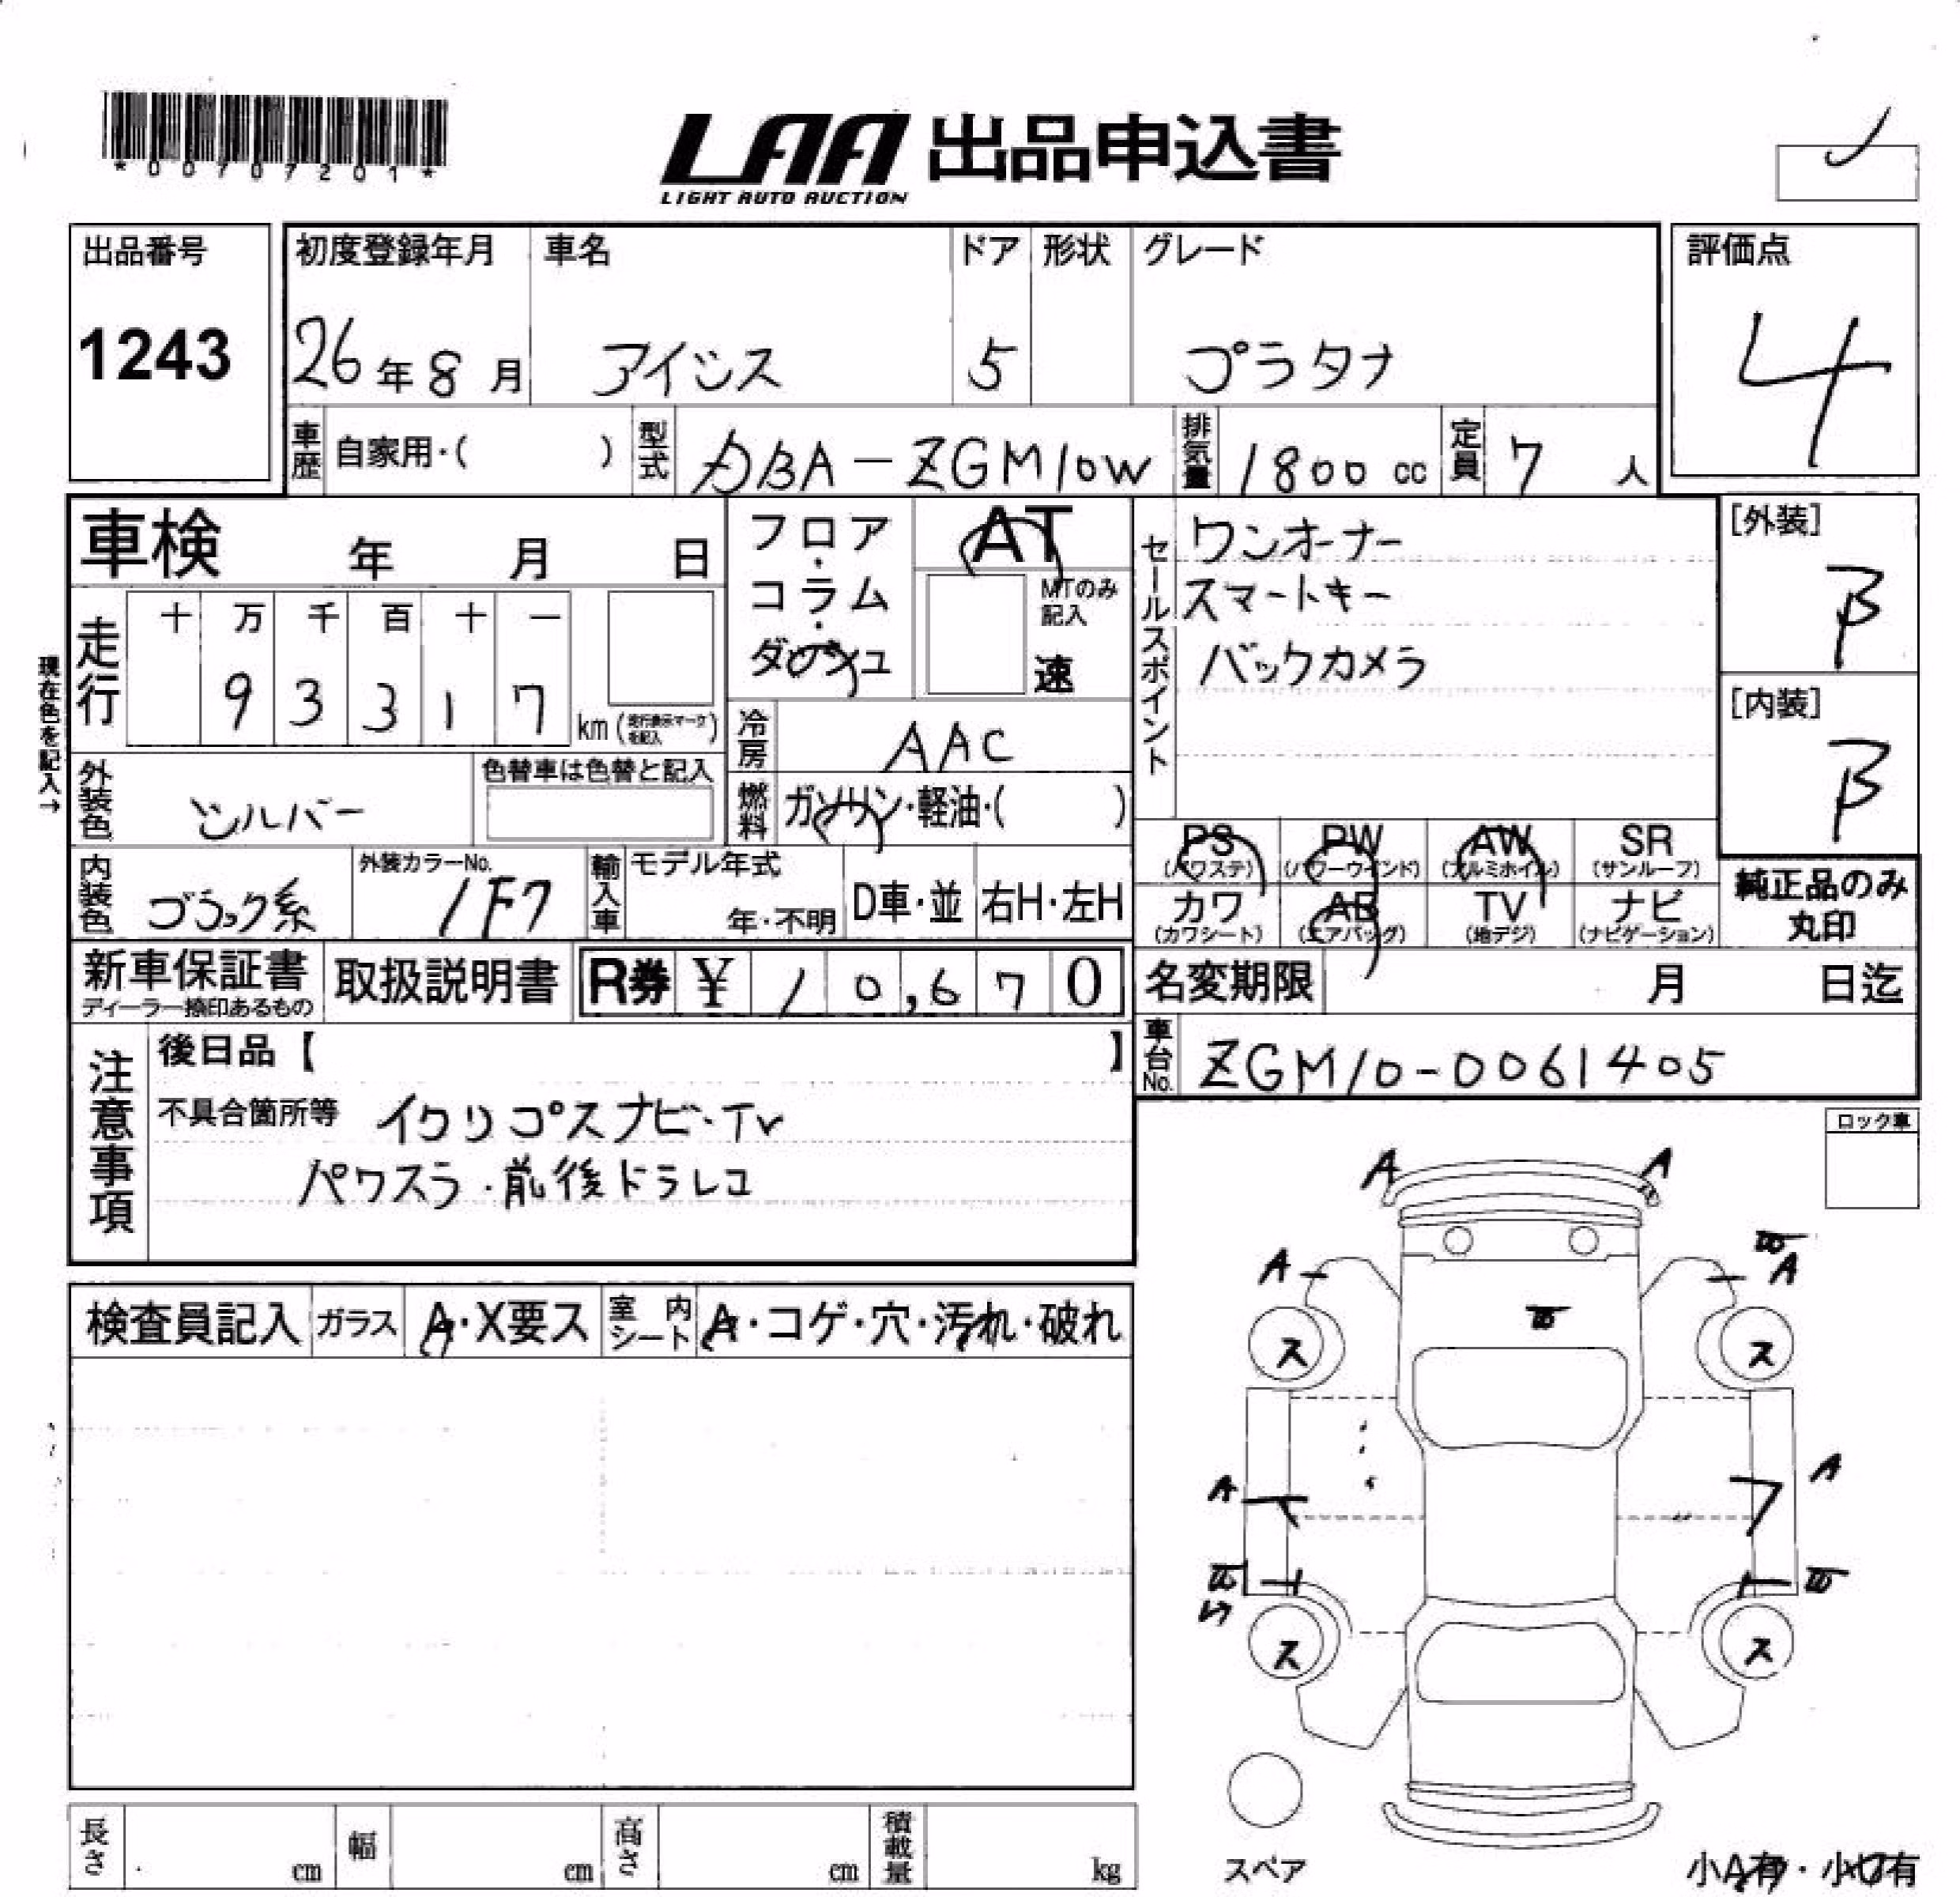 *00707201*
LAA 出品申込書
LIGHT AUTO AUCTION
出品番号
1243
初度登録年月 車名 ドア 形状 グレード
26年8月 アイシス 5 プラタナ
評価点
4
車歴 自家用・( ) 型式 DBA-ZGM10W 排気量 1800 cc 定員 7 人
車検 年 月 日
フロア・コラム・ダッシュ
AT
MTのみ記入
速
セールスポイント
ワンオーナー
スマートキー
バックカメラ
[外装]
B
[内装]
B
現在色を記入→
走行 十 万 千 百 十 一
9 3 3 1 7 km
冷房 AAC
外装色 シルバー 色替車は色替と記入
燃料 ガソリン・軽油・( )
PS PW AW SR
(パワステ) (パワーウインド) (アルミホイル) (サンルーフ)
カワ AB TV ナビ
(カワシート) (エアバッグ) (地デジ) (ナビゲーション)
純正品のみ
丸印
内装色 ブラック系 外装カラーNo. 1F7 輸入車 モデル年式 年・不明 D車・並 右H・左H
新車保証書
ディーラー捺印あるもの
取扱説明書 R券 ¥ 10,670
名変期限 月 日迄
車台No. ZGM10-0061405
注意事項
後日品【 】
不具合箇所等 イクリプスナビ・TV
パワスラ・前後ドラレコ
ロック車
検査員記入 ガラス A・X要ス 室内シート A・コゲ・穴・汚れ・破れ
A A
A A
ス ス
A A
ス ス
スペア
小A有・小U有
長さ cm 幅 cm 高さ cm 積載量 kg